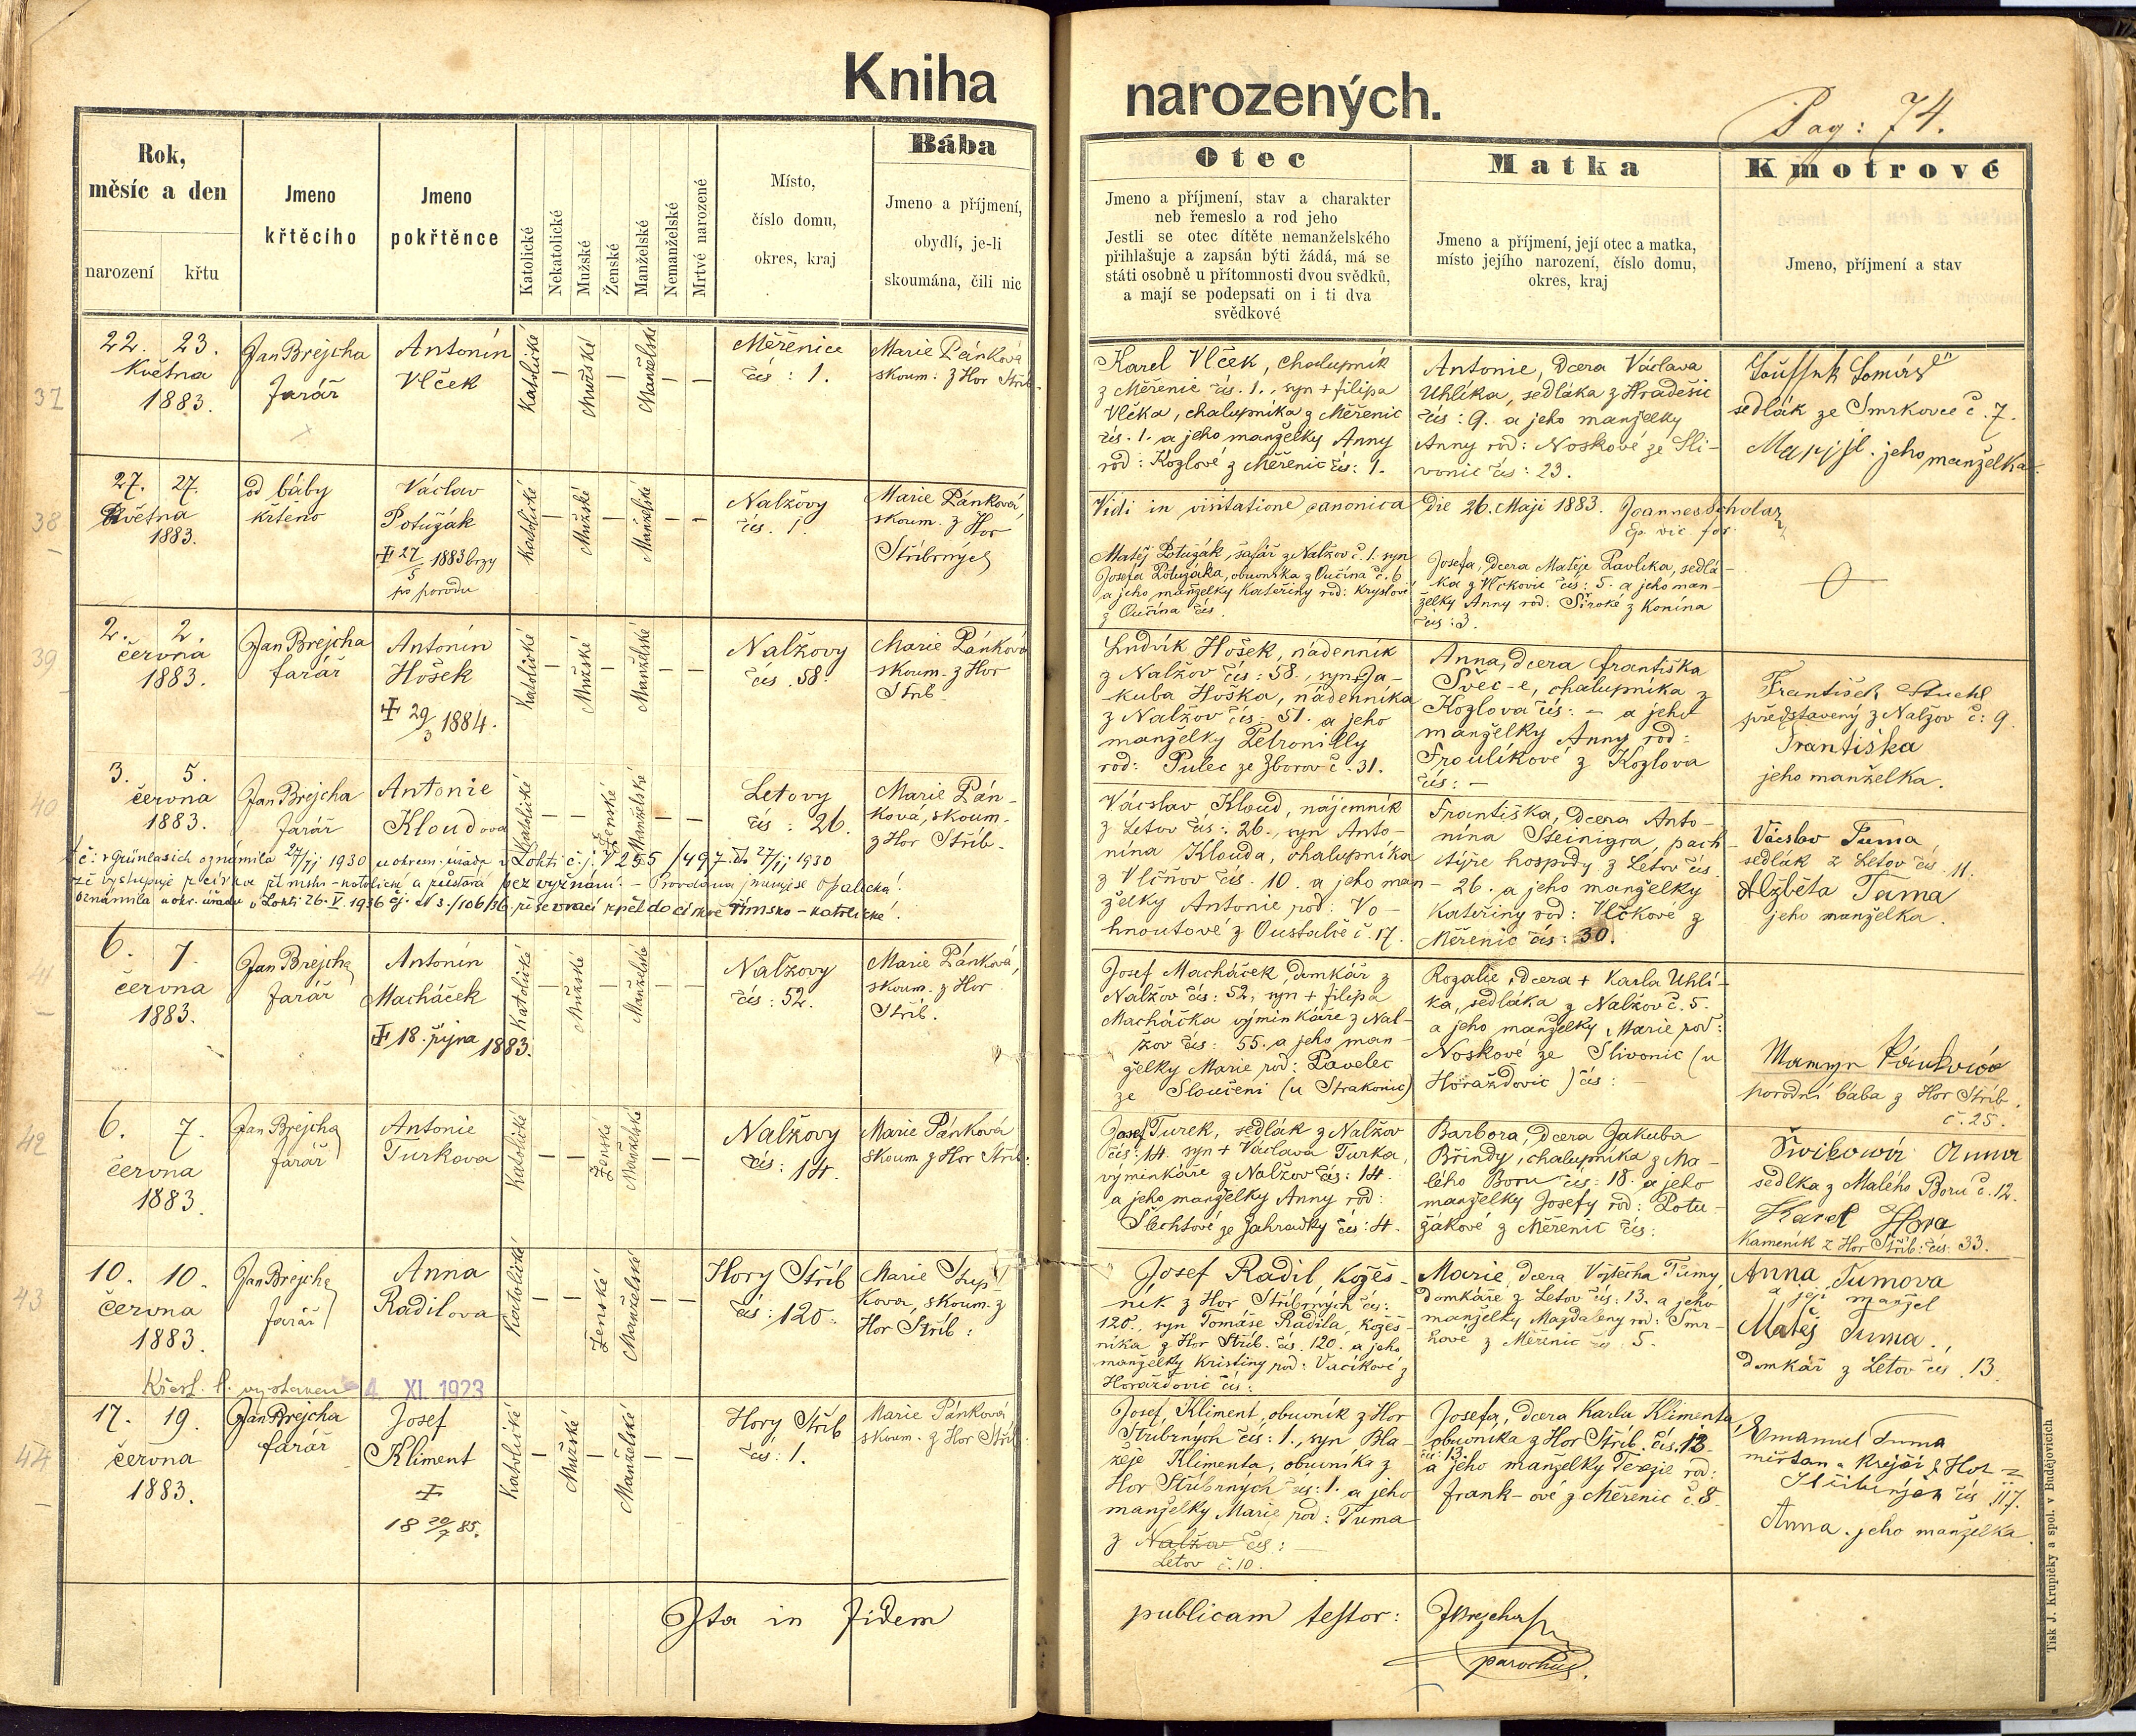 Kniha
narozených.
Pag: 74.
Rok,
měsíc a den
narození
křtu
Jmeno
křtěcího
Jmeno
pokřtěnce
Katolické
Nekatolické
Mužské
Ženské
Manželské
Nemanželské
Mrtvé narozené
Místo,
číslo domu,
okres, kraj
Bába
Jmeno a příjmení,
obydlí, je-li
skoumána, čili nic
Otec
Jmeno a příjmení, stav a charakter
neb řemeslo a rod jeho
Jestli se otec dítěte nemanželského
přihlašuje a zapsán býti žádá, má se
státi osobně u přítomnosti dvou svědků,
a mají se podepsati on i ti dva
svědkové
Matka
Jmeno a příjmení, její otec a matka,
místo jejího narození, číslo domu,
okres, kraj
Kmotrové
Jmeno, příjmení a stav
37
22. 23.
Května
1883.
Jan Brejcha
farář
Antonín
Vlček
Katolické
Mužské
Manželské
Měřenice
čís: 1.
Marie Pánková
skoum: z Hor Stříb.
Karel Vlček, chalupník
z Měřenic čís. 1., syn + filipa
Vlčka, chalupníka z Měřenic
čís. 1. a jeho manželky Anny
rod: Kozlové z Měřenic čís: 1.
Antonie, dcera Václava
Uhlíka, sedláka z Hradešic
čís: 9. a jeho manželky
Anny rod: Noskové ze Sli-
vonic čís: 23.
sedlák ze Smrkovce č. 7.
jeho manželka
38
27. 27.
Května
1883.
od báby
křteno
Václav
Potužák
27/5 1883 brzy
po porodu
Katolické
Mužské
Manželské
Nalžovy
čís. 1.
Marie Pánková,
skoum. z Hor
Stříbrných
Vidi in visitatione canonica die 26. Maji 1883. Joannes Scholaz
Ep. vic for.
Matěj Potužák, šafář z Nalžov č. 1. syn
Josefa Potužáka, obuvníka z Oučína č. 6.
a jeho manželky Kateřiny rod: Kryslové
z Oučína čís.
Josefa, dcera Matěje Pavlíka, sedlá-
ka z Vlčkovic čís: 5. a jeho man-
želky Anny rod: Široké z Konína
čís: 3.
39
2. 2.
června
1883.
Jan Brejcha
farář
Antonín
Hošek
29/3 1884.
Katolické
Mužské
Manželské
Nalžovy
čís. 58.
Marie Pánková
skoum. z Hor
Stříb.
Ludvík Hošek, nádenník
z Nalžov čís: 58., syn Ja-
kuba Hoška, nádenníka
z Nalžov čís: 51. a jeho
manželky Petronilly
rod: Pulec ze Zborov č. 31.
Anna, dcera františka
Švec-e, chalupníka z
Kozlova čís: - a jeho
manželky Anny rod:
Froulíkové z Kozlova
čís: -
František Stuchl
představený z Nalžov č: 9.
Františka
jeho manželka.
40
3. 5.
června
1883.
Jan Brejcha
farář
Antonie
Kloudova
Katolické
Ženské
Manželské
Letovy
čís: 26.
Marie Pán-
ková, skoum.
z Hor Stříb.
oznámila 27/11 1930 u okresn. úřadu v Lokti č. j. V 255/497 do 27/11 1930
že vystupuje z církve římsko-katolické a zůstává bez vyznání. - Provdaná jmenuje se Opalecká.
Oznámila u okr. úřadu v Lokti 26. V. 1936 že se vrací zpět do církve římsko-katolické.
Václav Kloud, nájemník
z Letov čís: 26., syn Anto-
nína Klouda, chalupníka
z Vlčňov čís. 10. a jeho man-
želky Antonie rod: Vo-
hnoutové z Oustalče č. 17.
Frantiśka, dcera Anto-
nína Steinigra, pach-
týře hospody z Letov čís.
26. a jeho manželky
Kateřiny rod: Vlčkové z
Měřenic čís: 30.
Václav Tuma
sedlák z Letov čís 11.
Alžběta Tuma
jeho manželka.
6. 7.
června
1883.
Jan Brejcha
farář
Antonín
Macháček
18. října 1883.
Katolické
Mužské
Manželské
Nalžovy
čís: 52.
Marie Pánková,
skoum. z Hor
Stříb.
Josef Macháček, domkář z
Nalžov čís: 52, syn + filipa
Macháčka výminkáře z Nal-
žov čís: 55. a jeho man-
želky Marie rod: Pavelec
ze Sloučení (u Strakonic)
Rozalie, dcera + Karla Uhlí-
ka, sedláka z Nalžov č. 5.
a jeho manželky Marie rod:
Noskové ze Slivonic (u
Horažďovic) čís: -
porodní bába z Hor Stříb.
č. 25.
42
6. 7.
června
1883.
Jan Brejcha
farář
Antonie
Turkova
Katolické
Ženské
Manželské
Nalžovy
čís: 14.
Marie Pánková
skoum. z Hor Stříb:
Josef Turek, sedlák z Nalžov
čís: 14. syn + Václava Turka,
výminkáře z Nalžov čís: 14.
a jeho manželky Anny rod:
Šlechtové ze Zahradky čís: 4.
Barbora, dcera Jakuba
Břindy, chalupníka z Ma-
lého Boru čís: 18. a jeho
manželky Josefy rod: Potu-
žákové z Měřenic čís:
sedlka z Malého Boru č. 12.
Karel Hora
Kameník z Hor Stříb: čís: 33.
43
10. 10.
června
1883.
Jan Brejcha
farář
Anna
Radilova
Katolické
Ženské
Manželské
Hory Stříb
čís: 120.
Marie Stup-
kova, skoum. z
Hor Stříb:
Křest. l. vystaven 4. XI. 1923
Josef Radil, kožeš-
ník z Hor Stříbrných čís:
120., syn Tomáše Radila, kožeš-
níka z Hor Stříb. čís. 120. a jeho
manželky Kristiny rod: Vacíkové z
Horažďovic čís:
Marie, dcera Vojtěcha Tůmy
domkáře z Letov čís: 13. a jeho
manželky Magdaleny rod: Smr-
hové z Měřenic čís. 5.
Anna Tumova
a její manžel
Matěj Tuma,
domkář z Letov čís. 13.
44
17. 19.
června
1883.
Jan Brejcha
farář
Josef
Kliment
18 20/7 85.
Katolické
Mužské
Manželské
Hory Stříb
čís: 1.
Marie Pánková
skoum. z Hor Stříb:
Josef Kliment, obuvník z Hor
Stříbrných čís: 1., syn Bla-
žeje Klimenta, obuvníka z
Hor Stříbrných čís: 1. a jeho
manželky Marie rod: Tuma
z Nalžov čís: -
Letov č. 10.
Josefa, dcera Karla Klimenta,
obuvníka z Hor Stříb. čís. 13.
čís: 13.
a jeho manželky Terezie rod:
frank-ové z Měřenic č. 8.
Emanuel Tuma
měšťan a Krejčí z Hor
Stříbrných čís 117.
Anna jeho manželka.
Ita in fidem
publicam testor:
JBrejcha
parochus.
Tisk J. Krupičky a spol. v Budějovicích